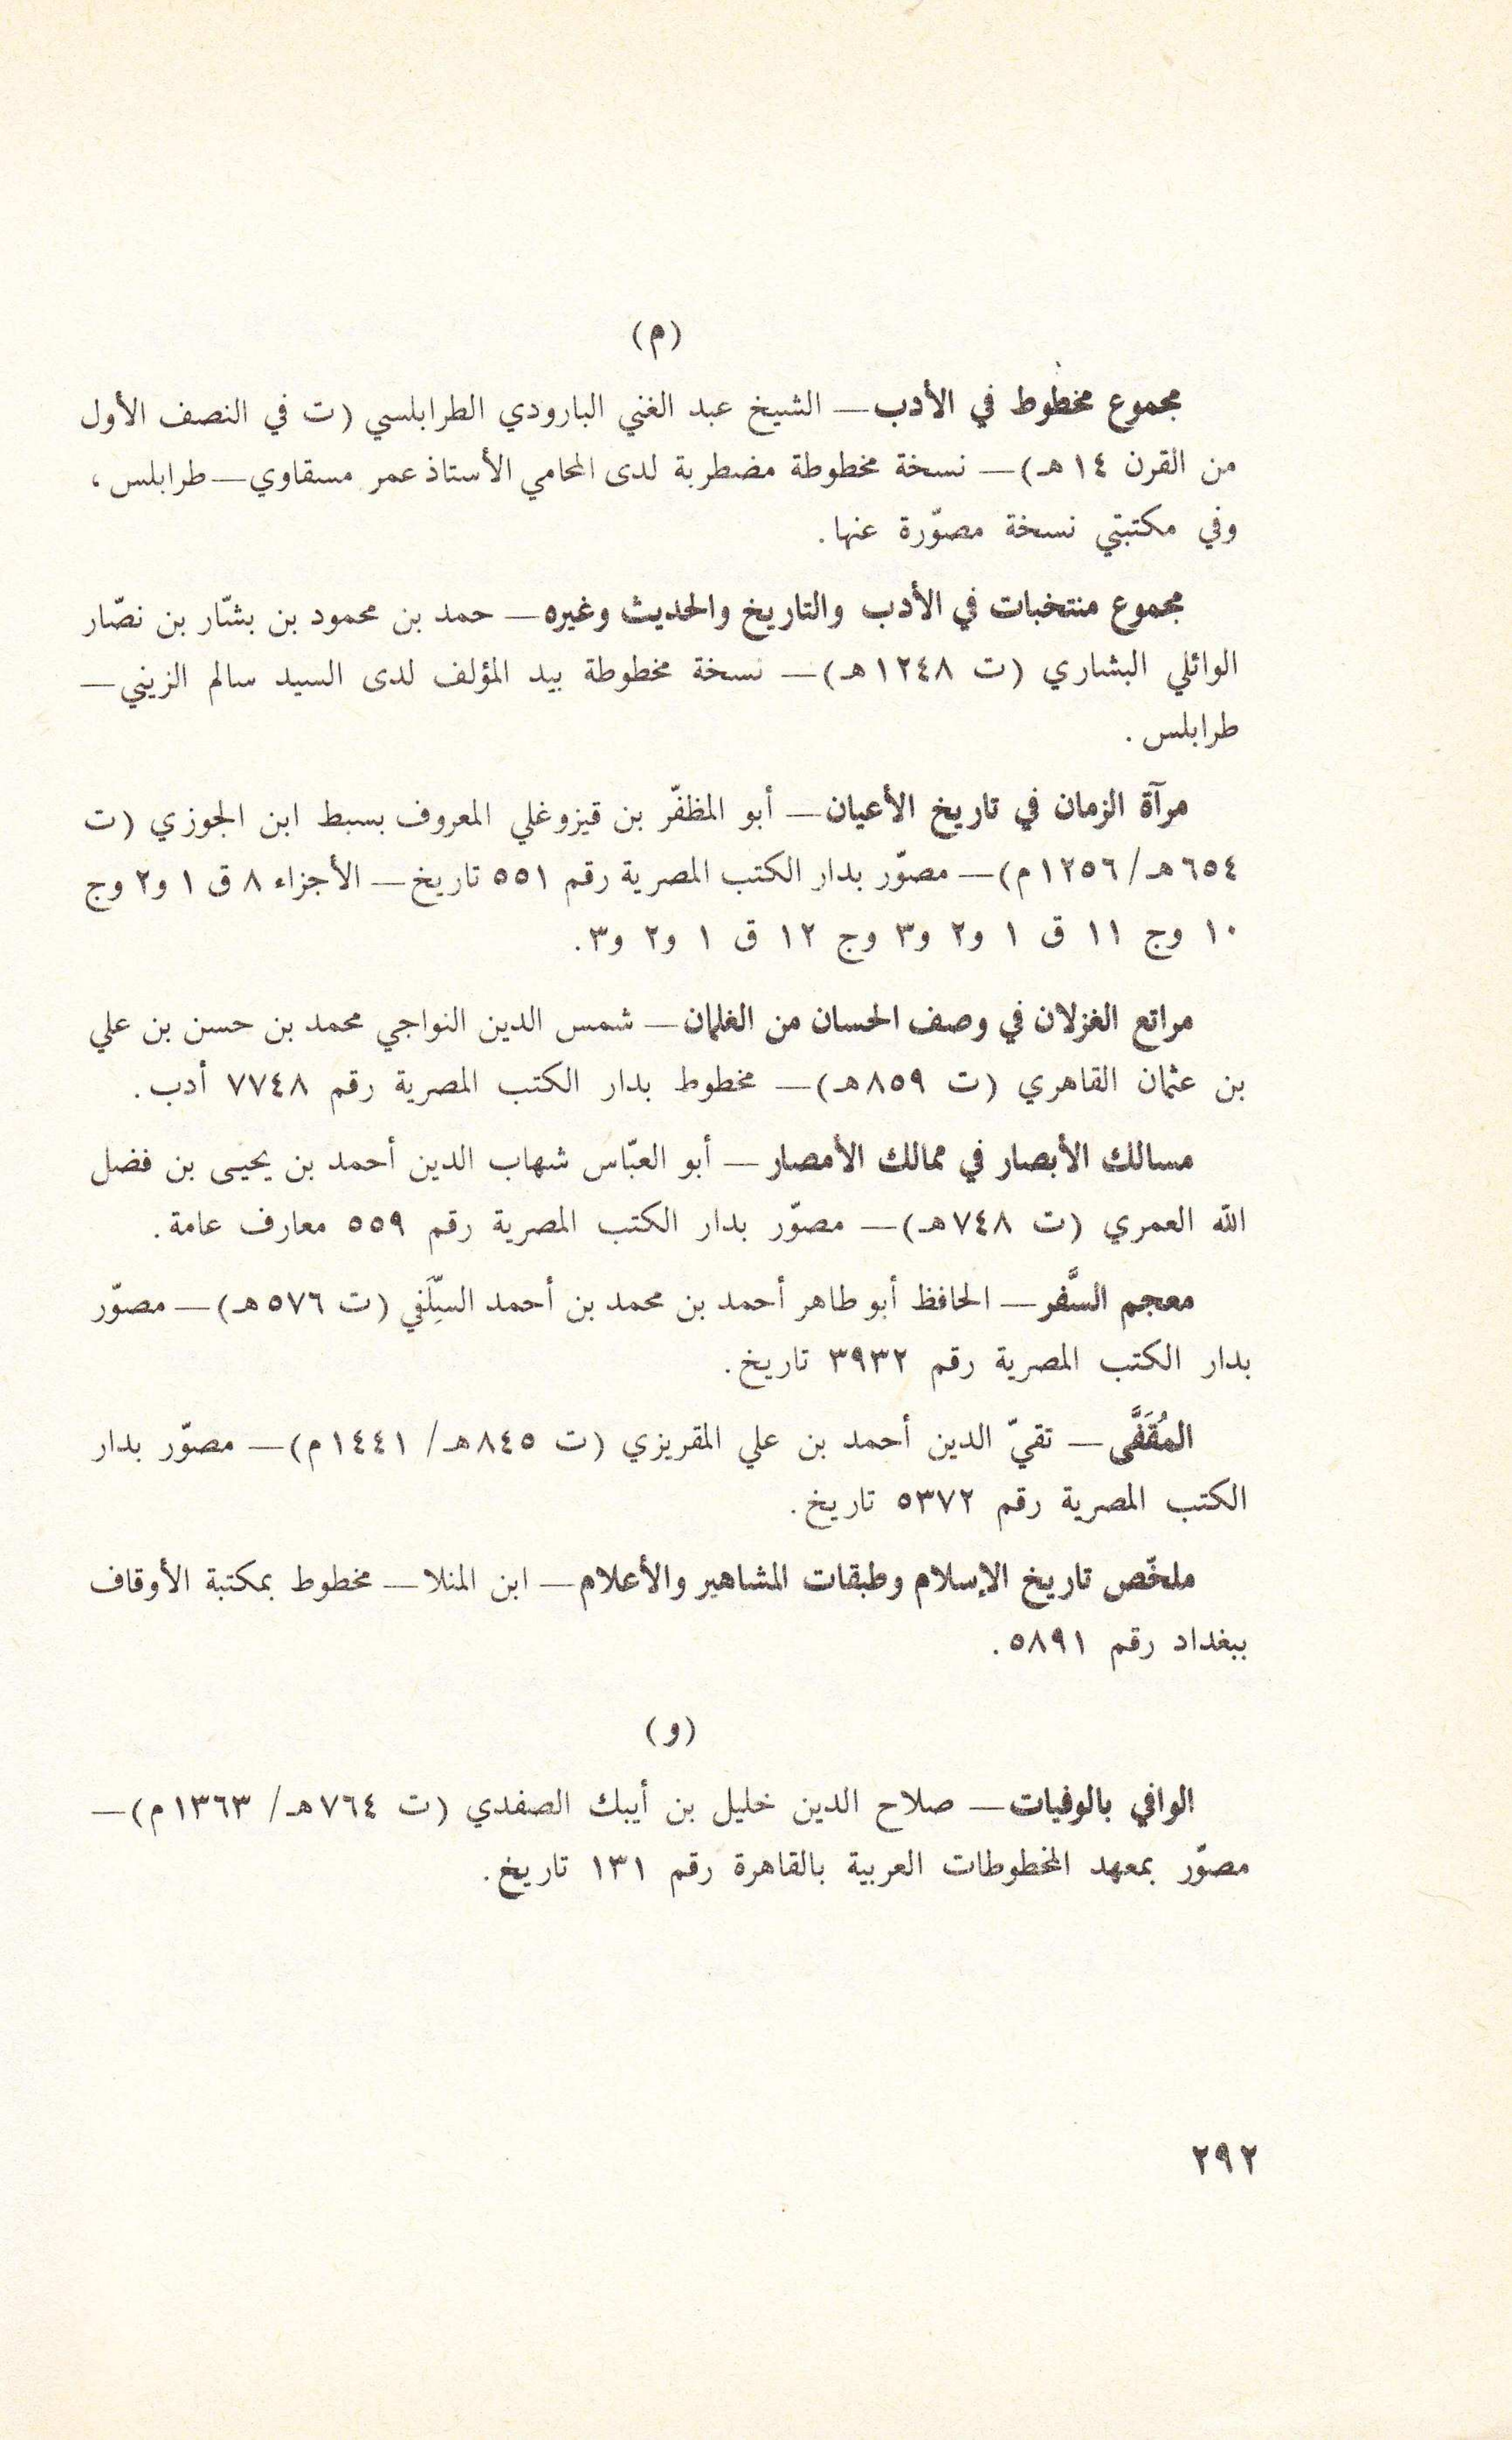 (م)
مجموع مخطوط في الأدب — الشيخ عبد الغني البارودي الطرابلسي (ت في النصف الأول
من القرن ١٤ هـ) — نسخة مخطوطة مضطربة لدى المحامي الأستاذ عمر مسقاوي — طرابلس،
وفي مكتبتي نسخة مصوّرة عنها.
مجموع منتخبات في الأدب والتاريخ والحديث وغيره — حمد بن محمود بن بشّار بن نصّار
الوائلي البشاري (ت ١٢٤٨ هـ) — نسخة مخطوطة بيد المؤلف لدى السيد سالم الزيني —
طرابلس.
مرآة الزمان في تاريخ الأعيان — أبو المظفّر بن قيزوغلي المعروف بسبط ابن الجوزي (ت
٦٥٤ هـ/ ١٢٥٦ م) — مصوّر بدار الكتب المصرية رقم ٥٥١ تاريخ — الأجزاء ٨ ق ١ و٢ وج
١٠ وج ١١ ق ١ و٢ و٣ وج ١٢ ق ١ و٢ و٣.
مراتع الغزلان في وصف الحسان من الغلمان — شمس الدين النواجي محمد بن حسن بن علي
بن عثمان القاهري (ت ٨٥٩ هـ) — مخطوط بدار الكتب المصرية رقم ٧٧٤٨ أدب.
مسالك الأبصار في ممالك الأمصار — أبو العبّاس شهاب الدين أحمد بن يحيى بن فضل
الله العمري (ت ٧٤٨ هـ) — مصوّر بدار الكتب المصرية رقم ٥٥٩ معارف عامة.
معجم السَّفر — الحافظ أبو طاهر أحمد بن محمد بن أحمد السِّلَفي (ت ٥٧٦ هـ) — مصوّر
بدار الكتب المصرية رقم ٣٩٣٢ تاريخ.
المُقَفَّى — تقيّ الدين أحمد بن علي المقريزي (ت ٨٤٥ هـ/ ١٤٤١ م) — مصوّر بدار
الكتب المصرية رقم ٥٣٧٢ تاريخ.
ملخّص تاريخ الإسلام وطبقات المشاهير والأعلام — ابن المنلا — مخطوط بمكتبة الأوقاف
ببغداد رقم ٥٨٩١.
(و)
الوافي بالوفيات — صلاح الدين خليل بن أيبك الصفدي (ت ٧٦٤ هـ/ ١٣٦٣ م) —
مصوّر بمعهد المخطوطات العربية بالقاهرة رقم ١٣١ تاريخ.
٢٩٢